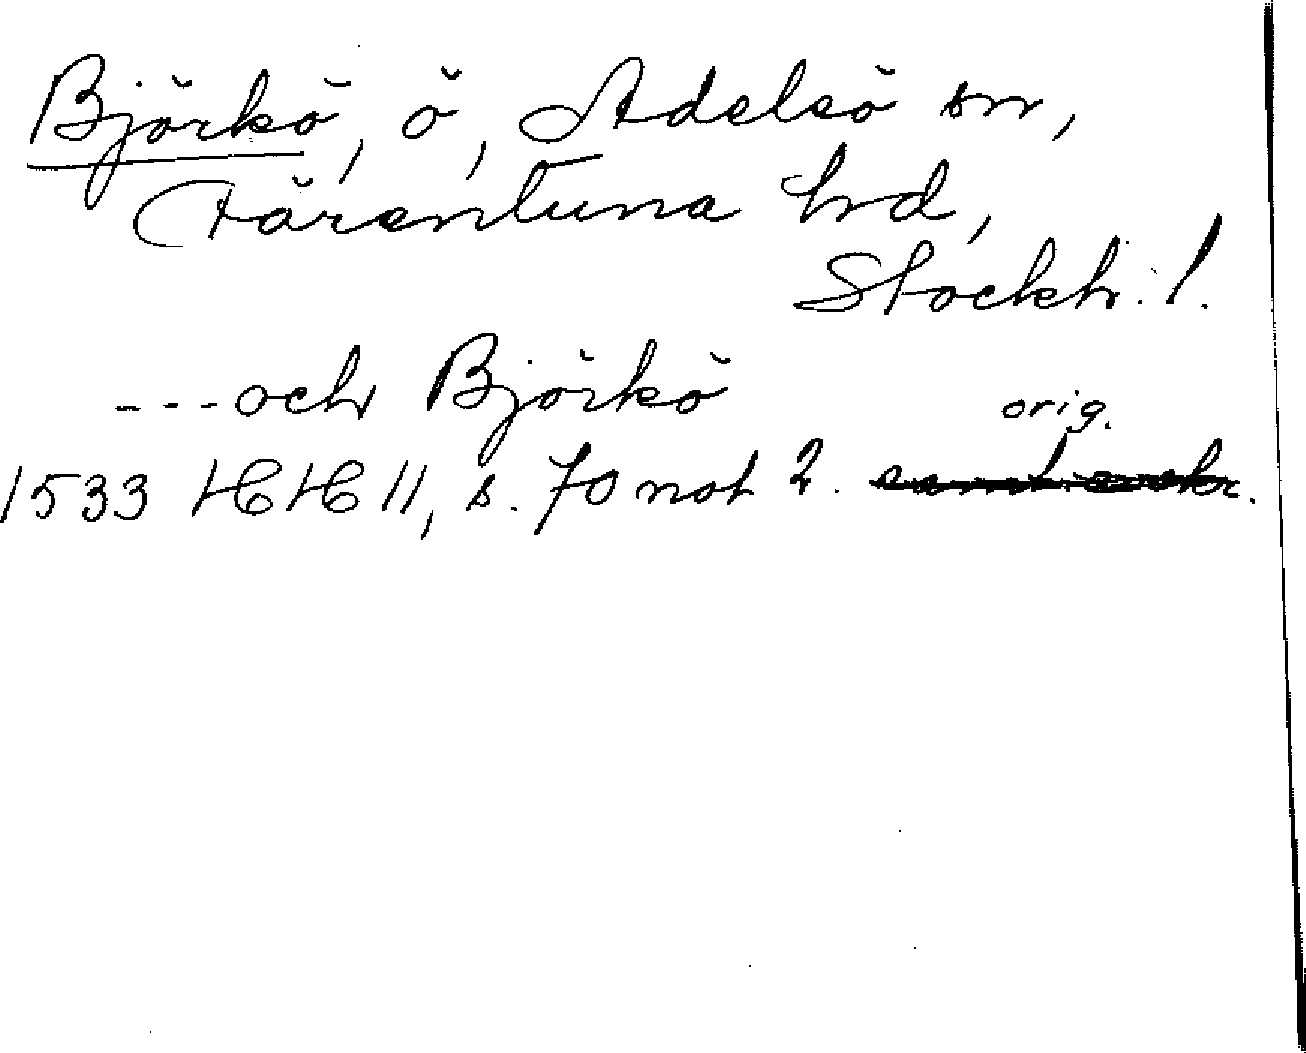 Björkö, ö, Adelsö sn,
Färentuna hd,
Stockh. l.
---och Björkö
orig.
1533 HH 11, s. 70 not 2.